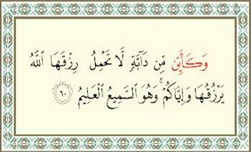 وَكَأَيِّن مِّن دَآبَّةٍ لَّا تَحْمِلُ رِزْقَهَا اللَّهُ
يَرْزُقُهَا وَإِيَّاكُمْ ۚ وَهُوَ السَّمِيعُ الْعَلِيمُ ۝٦٠